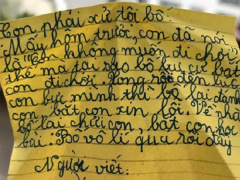 Con phải xử tội bố.
Mấy hôm trước, con đã nói
là con không muốn đi chơi
thế mà tại sao bố lại bắt
con đi chơi, xong rồi đến lúc
con bực mình thì bố lại đánh
con, bắt con xin lỗi. Và
bố lại chửi con, bắt con học
bài. Bố vô lí quá rồi đấy
Người viết: